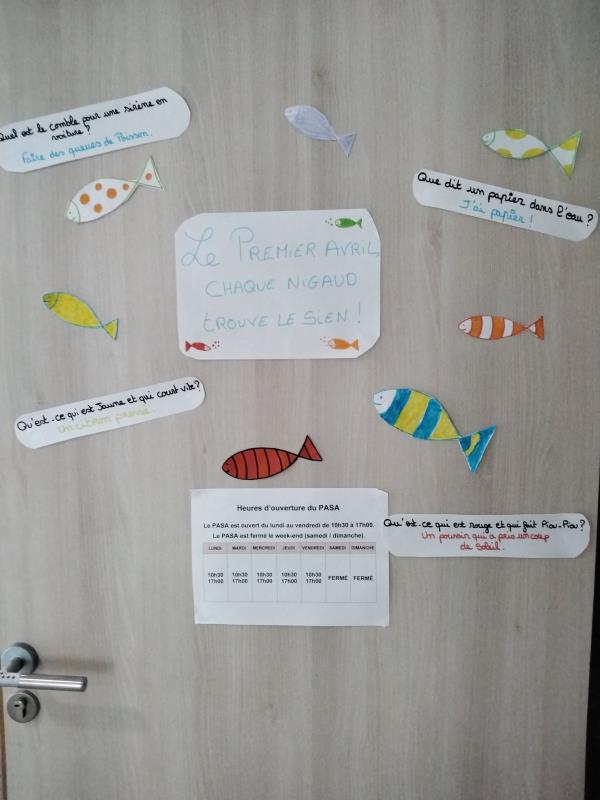 Quel est le comble pour une sirène en
voiture ?
Faire des queues de Poisson.
Que dit un papier dans l'eau ?
J'ai papier !
Le PREMIER AVRIL,
CHAQUE NIGAUD
TROUVE LE SIEN !
Qu'est-ce qui est Jaune et qui court vite ?
Un citron pressé.
Heures d'ouverture du PASA
Le PASA est ouvert du lundi au vendredi de 10h30 à 17h00.
Le PASA est fermé le week-end (samedi / dimanche).
LUNDI MARDI MERCREDI JEUDI VENDREDI SAMEDI DIMANCHE
10h30 10h30 10h30 10h30 10h30 FERMÉ FERMÉ
17h00 17h00 17h00 17h00 17h00
Qu'est-ce qui est rouge et qui fait Piou-Piou ?
Un poussin qui a pris un coup
de Soleil.